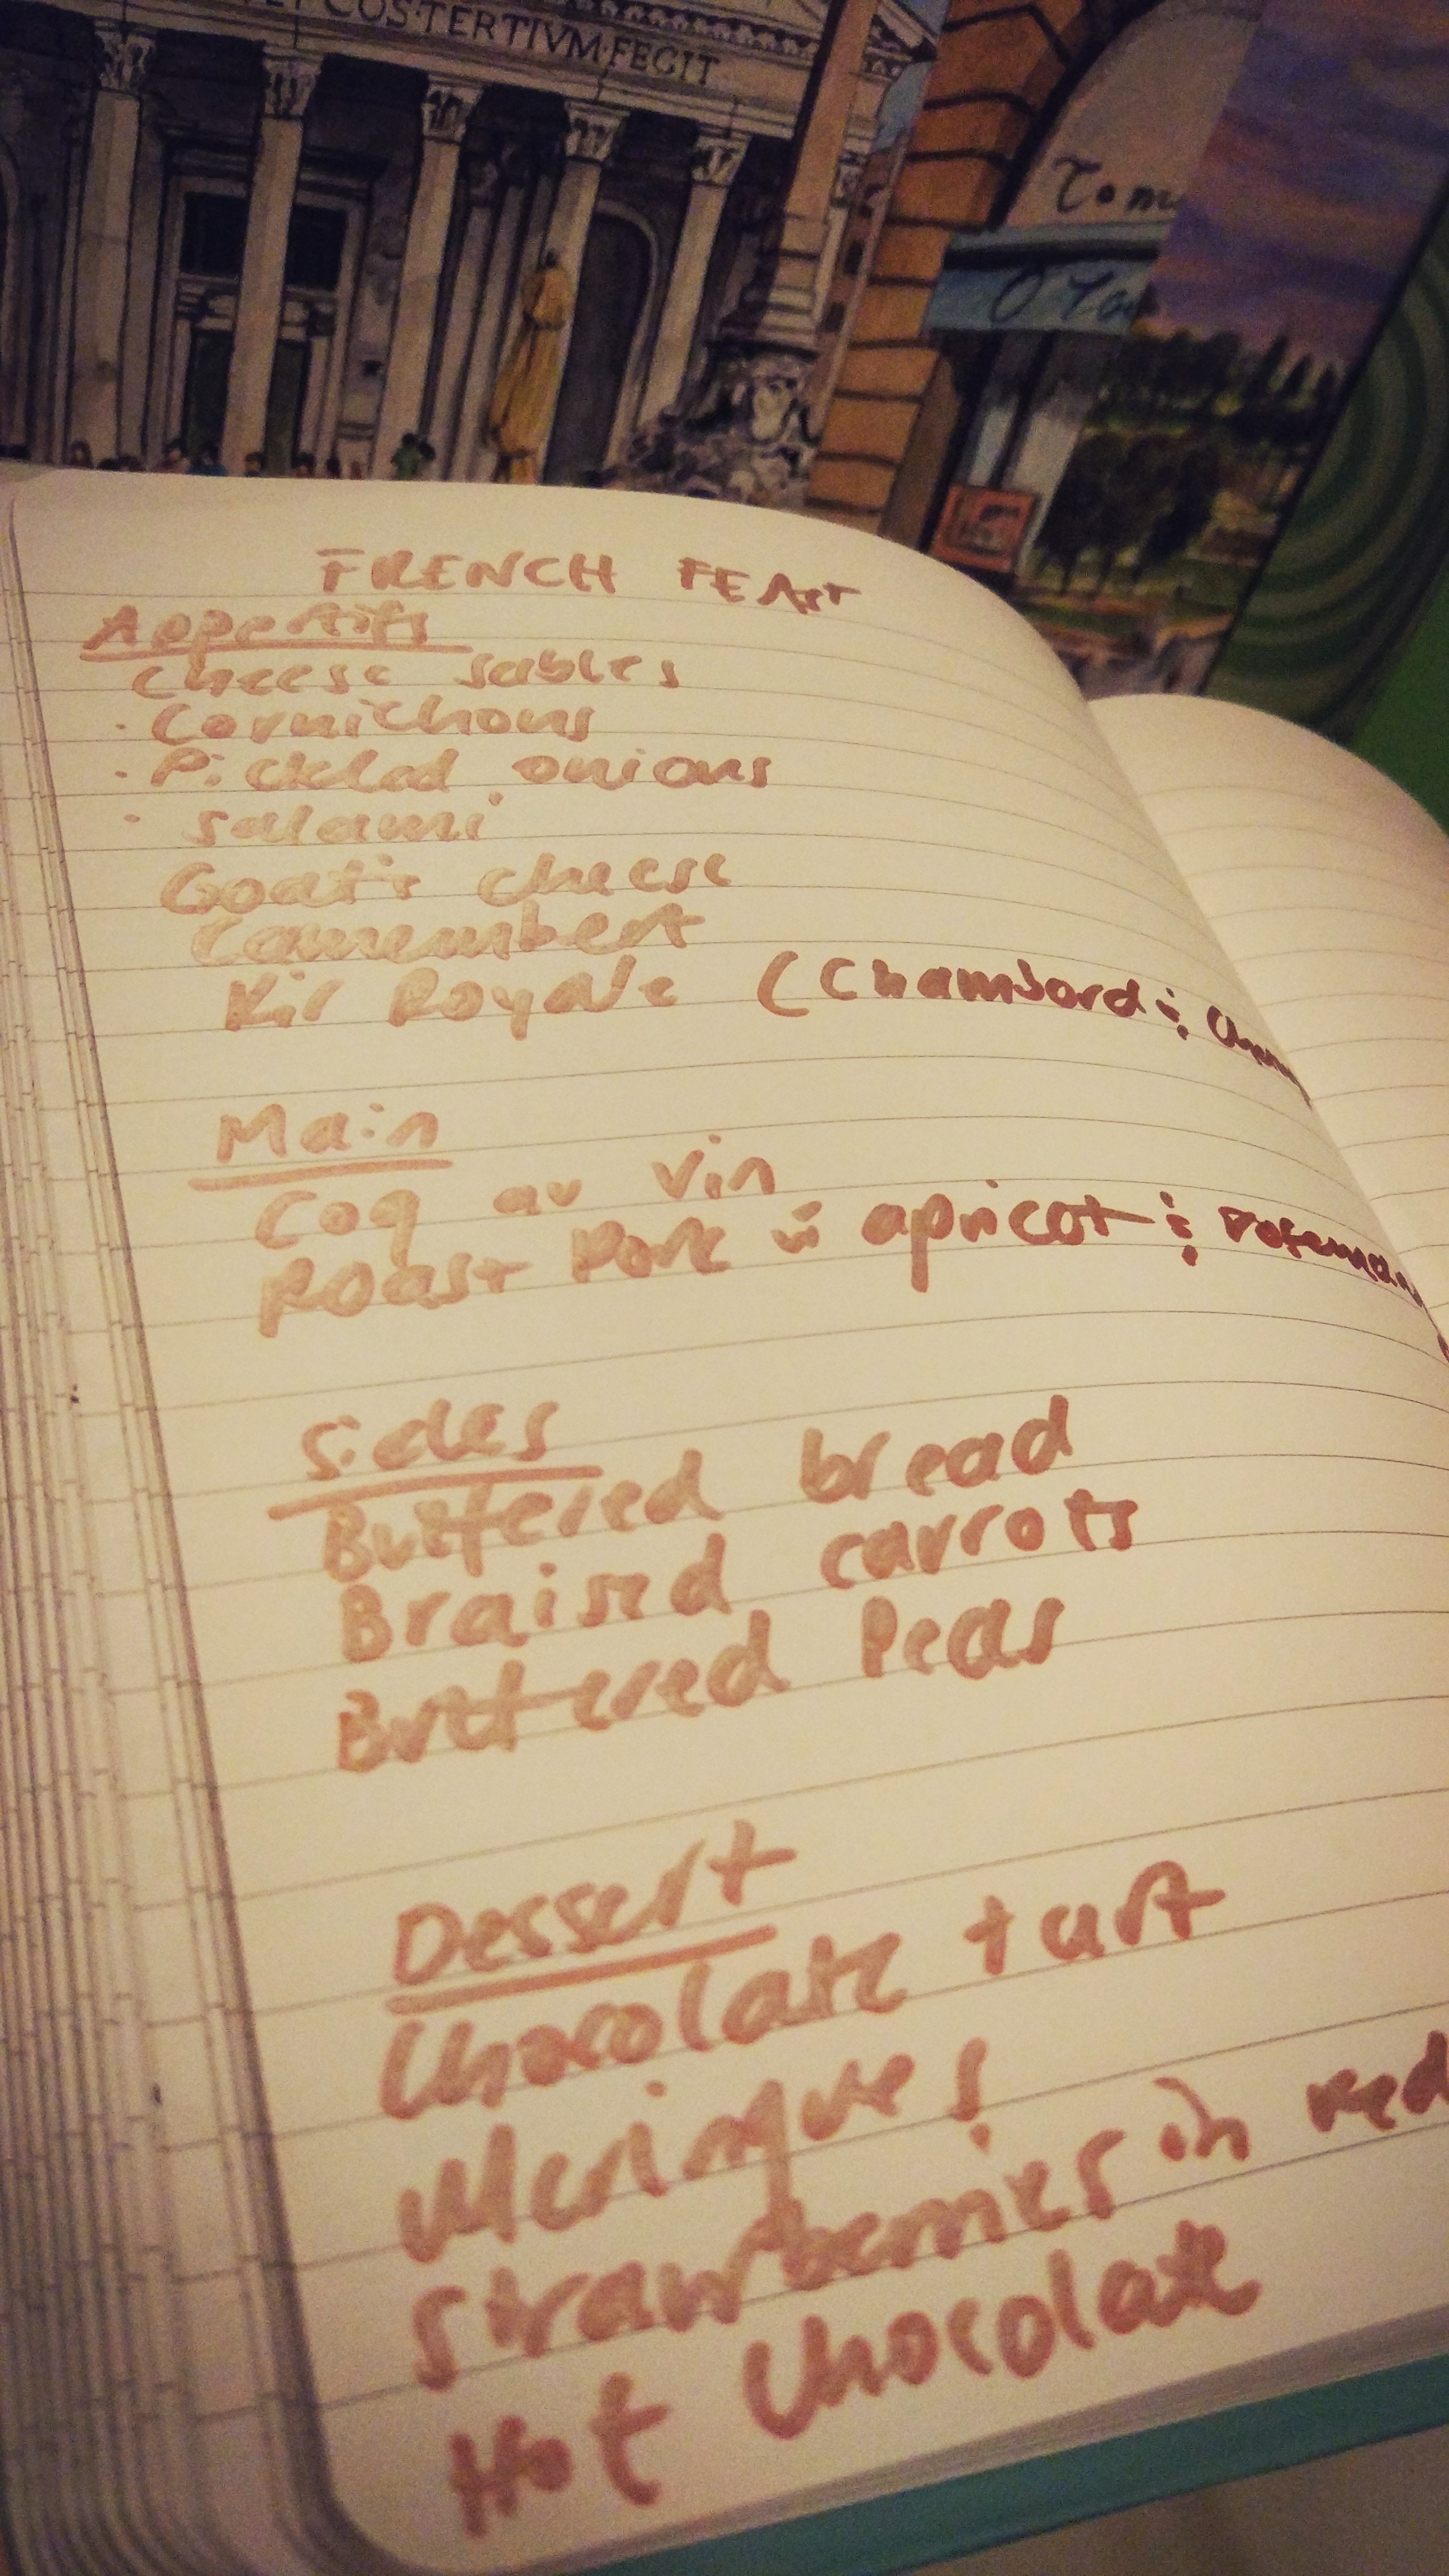 COS·TERTIVM·FECIT
FRENCH FEAST
Appertifs
Cheese sables
· Cornichons
· Pickled onions
· Salami
Goat's cheese
Camembert
Kir Royale (Chambord &
Main
Coq au vin
Roast Pork w apricot &
Sides
Buttered bread
Braised carrots
Buttered Peas
Dessert
Chocolate tart
Meringues
Strawberries in red
Hot Chocolate